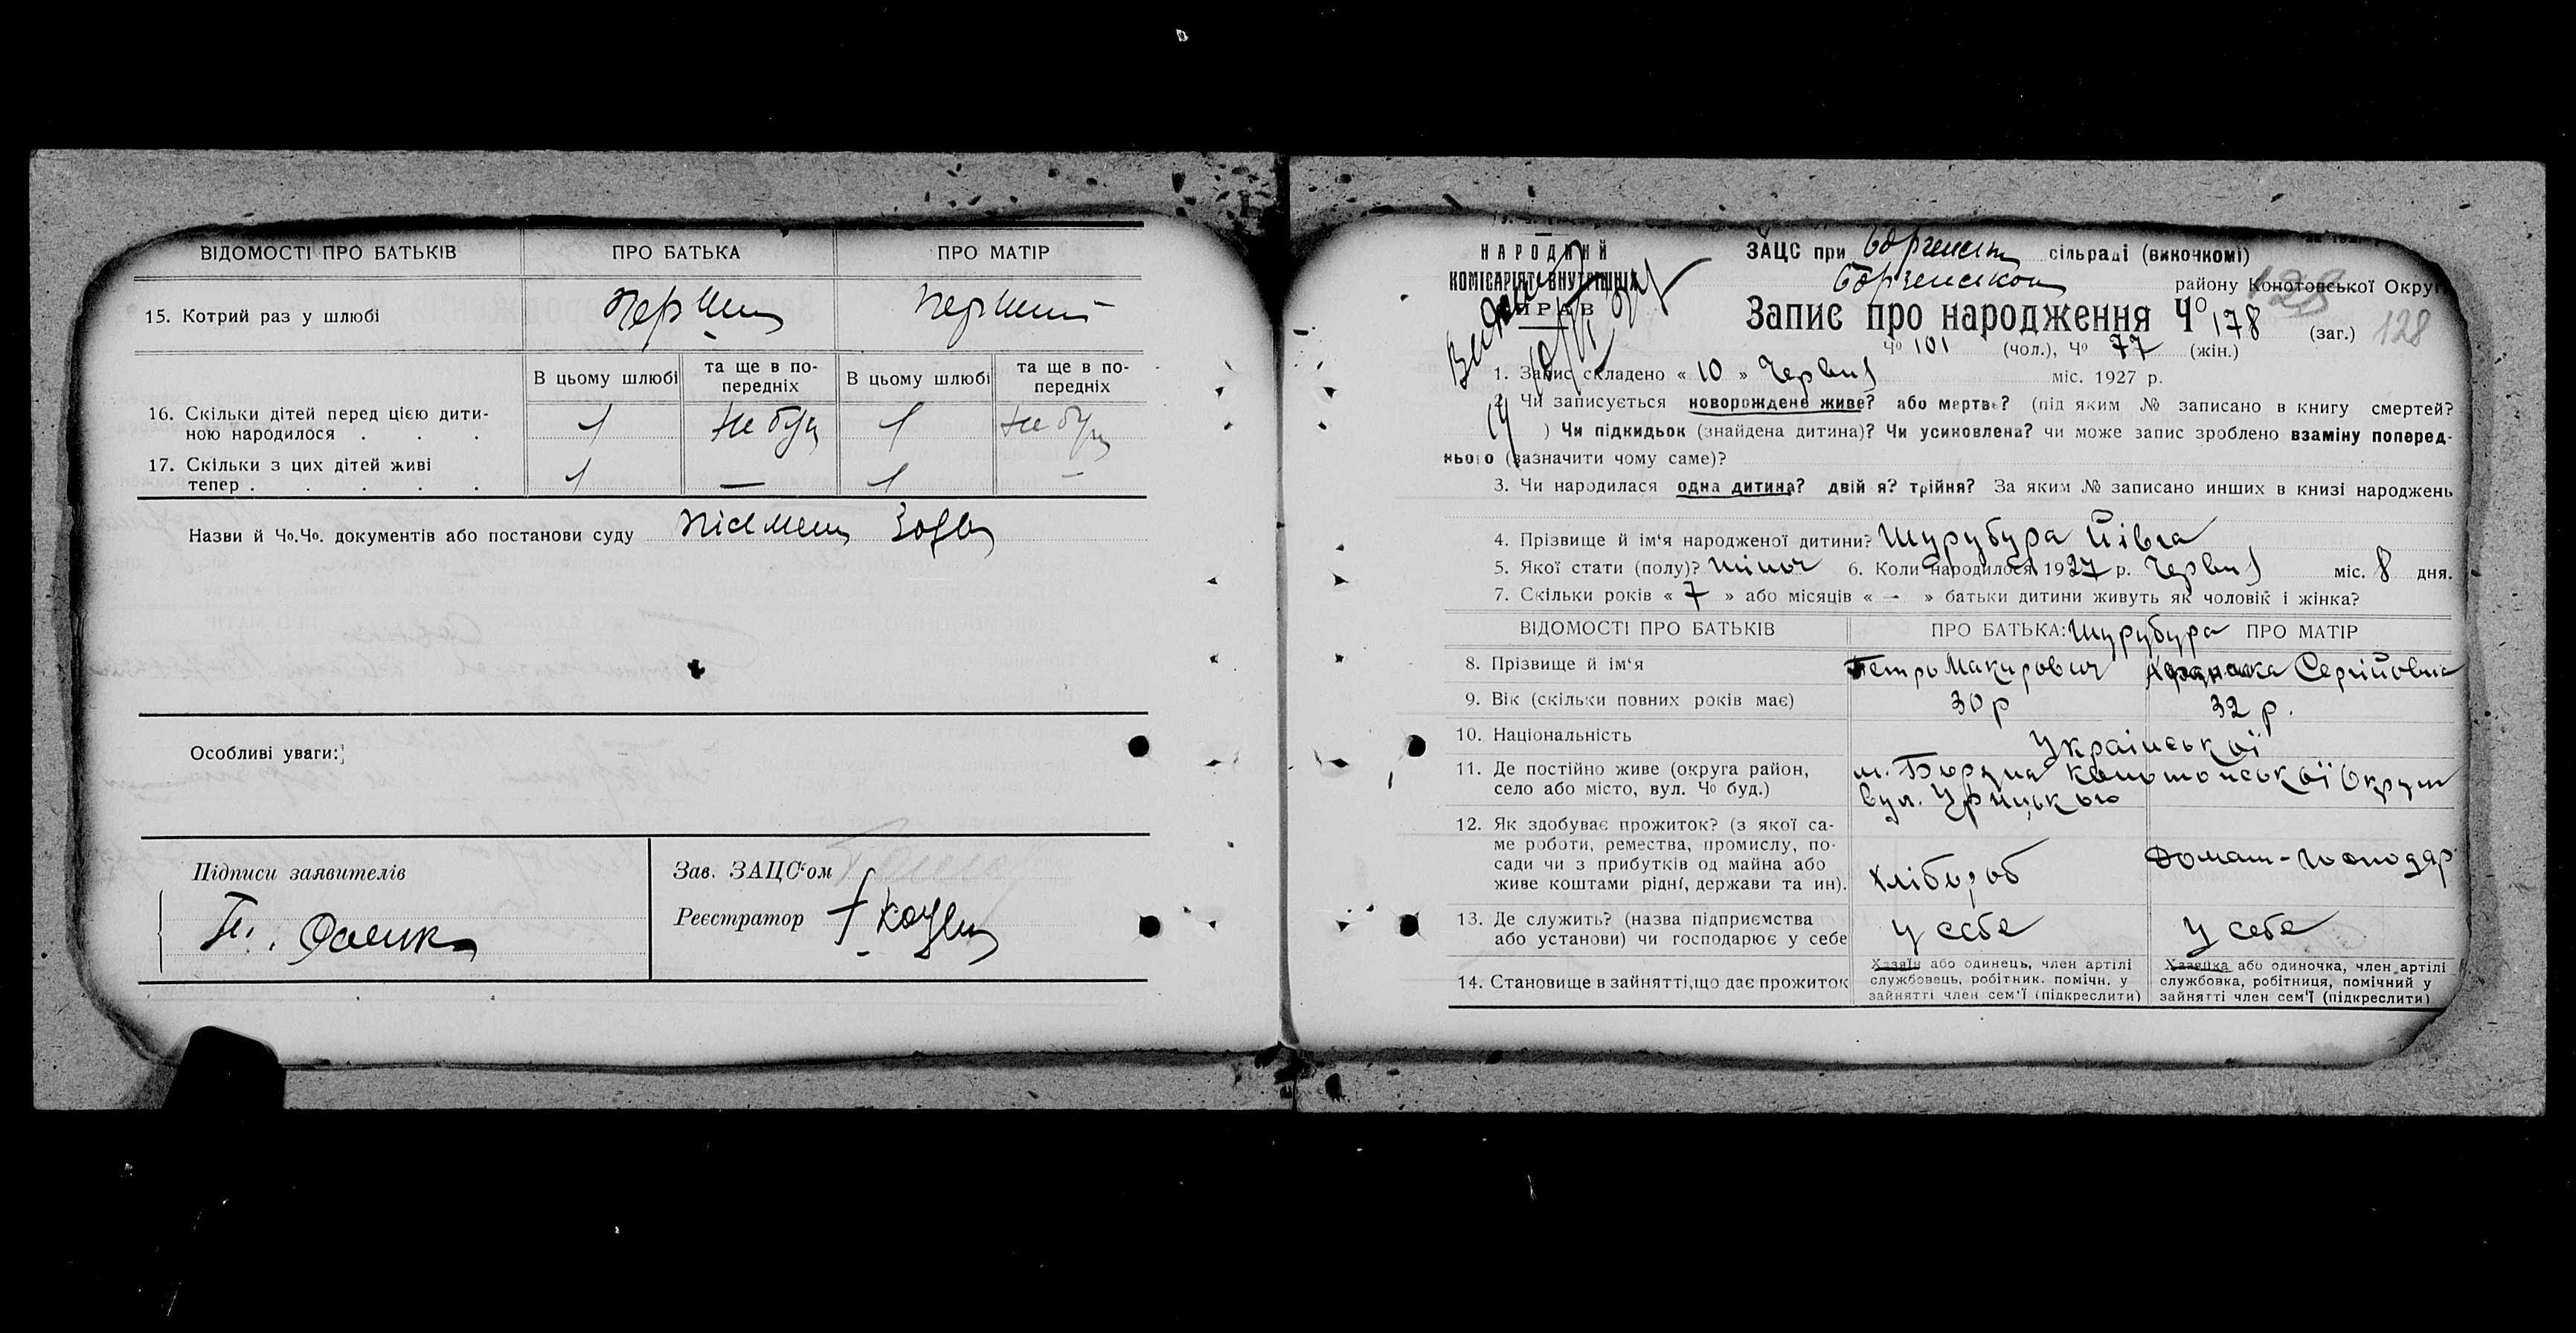 ВІДОМОСТІ ПРО БАТЬКІВ ПРО БАТЬКА ПРО МАТІР
15. Котрий раз у шлюбі Перший Перший
В цьому шлюбі та ще в по-передніх В цьому шлюбі та ще в по-передніх
16. Скільки дітей перед цією дити-
ною народилося . . . 1 Не було 1 Не було
17. Скільки з цих дітей живі
тепер . . . . . 1 — 1 —
Назви й Чо.Чо. документів або постанови суду
Особливі уваги:
Підписи заявителів
Зав. ЗАЦС'ом
Реєстратор
НАРОДНИЙ
КОМІСАРІЯТ ВНУТРІШНІХ
СПРАВ
ЗАЦС при сільраді (виконкомі)
району Конотопської Округ
Запис про народження Чо 178 (заг.) 128
Чо 101 (чол.), Чо 77 (жін.)
1. Запис складено « 10 » Червня міс. 1927 р.
2. Чи записується новорождене живе? або мертве? (під яким № записано в книгу смертей?
) Чи підкидьок (знайдена дитина)? Чи усиновлена? чи може запис зроблено взаміну поперед-
нього (зазначити чому саме)?
3. Чи народилася одна дитина? двійня? трійня? За яким № записано инших в книзі народжень
4. Прізвище й ім'я народженої дитини? Шурубура Йівга
5. Якої стати (полу)? жіноч 6. Коли народилося 1927 р. Червня міс. 8 дня.
7. Скільки років « 7 » або місяців « – » батьки дитини живуть як чоловік і жінка?
ВІДОМОСТІ ПРО БАТЬКІВ ПРО БАТЬКА: Шурубура ПРО МАТІР
8. Прізвище й ім'я Петро Макарович Сергійовна
9. Вік (скільки повних років має) 30 р 32 р.
10. Національність Української
11. Де постійно живе (округа район,
село або місто, вул. Чо буд.) м. Борзна Конотопської Округи
вул. Урицького
12. Як здобуває прожиток? (з якої са-
ме роботи, ремества, промислу, по-
сади чи з прибутків од майна або
живе коштами рідні, держави та ин). Хлібороб Домаш-господар
13. Де служить? (назва підприємства
або установи) чи господарює у себе У себе У себе
14. Становище в зайнятті, що дає прожиток
Хазяїн або одинець, член артілі
службовець, робітник, помічн. у
зайнятті член сем'ї (підкреслити)
Хазяйка або одиночка, член артілі
службовка, робітниця, помічний у
зайнятті член сем'ї (підкреслити)